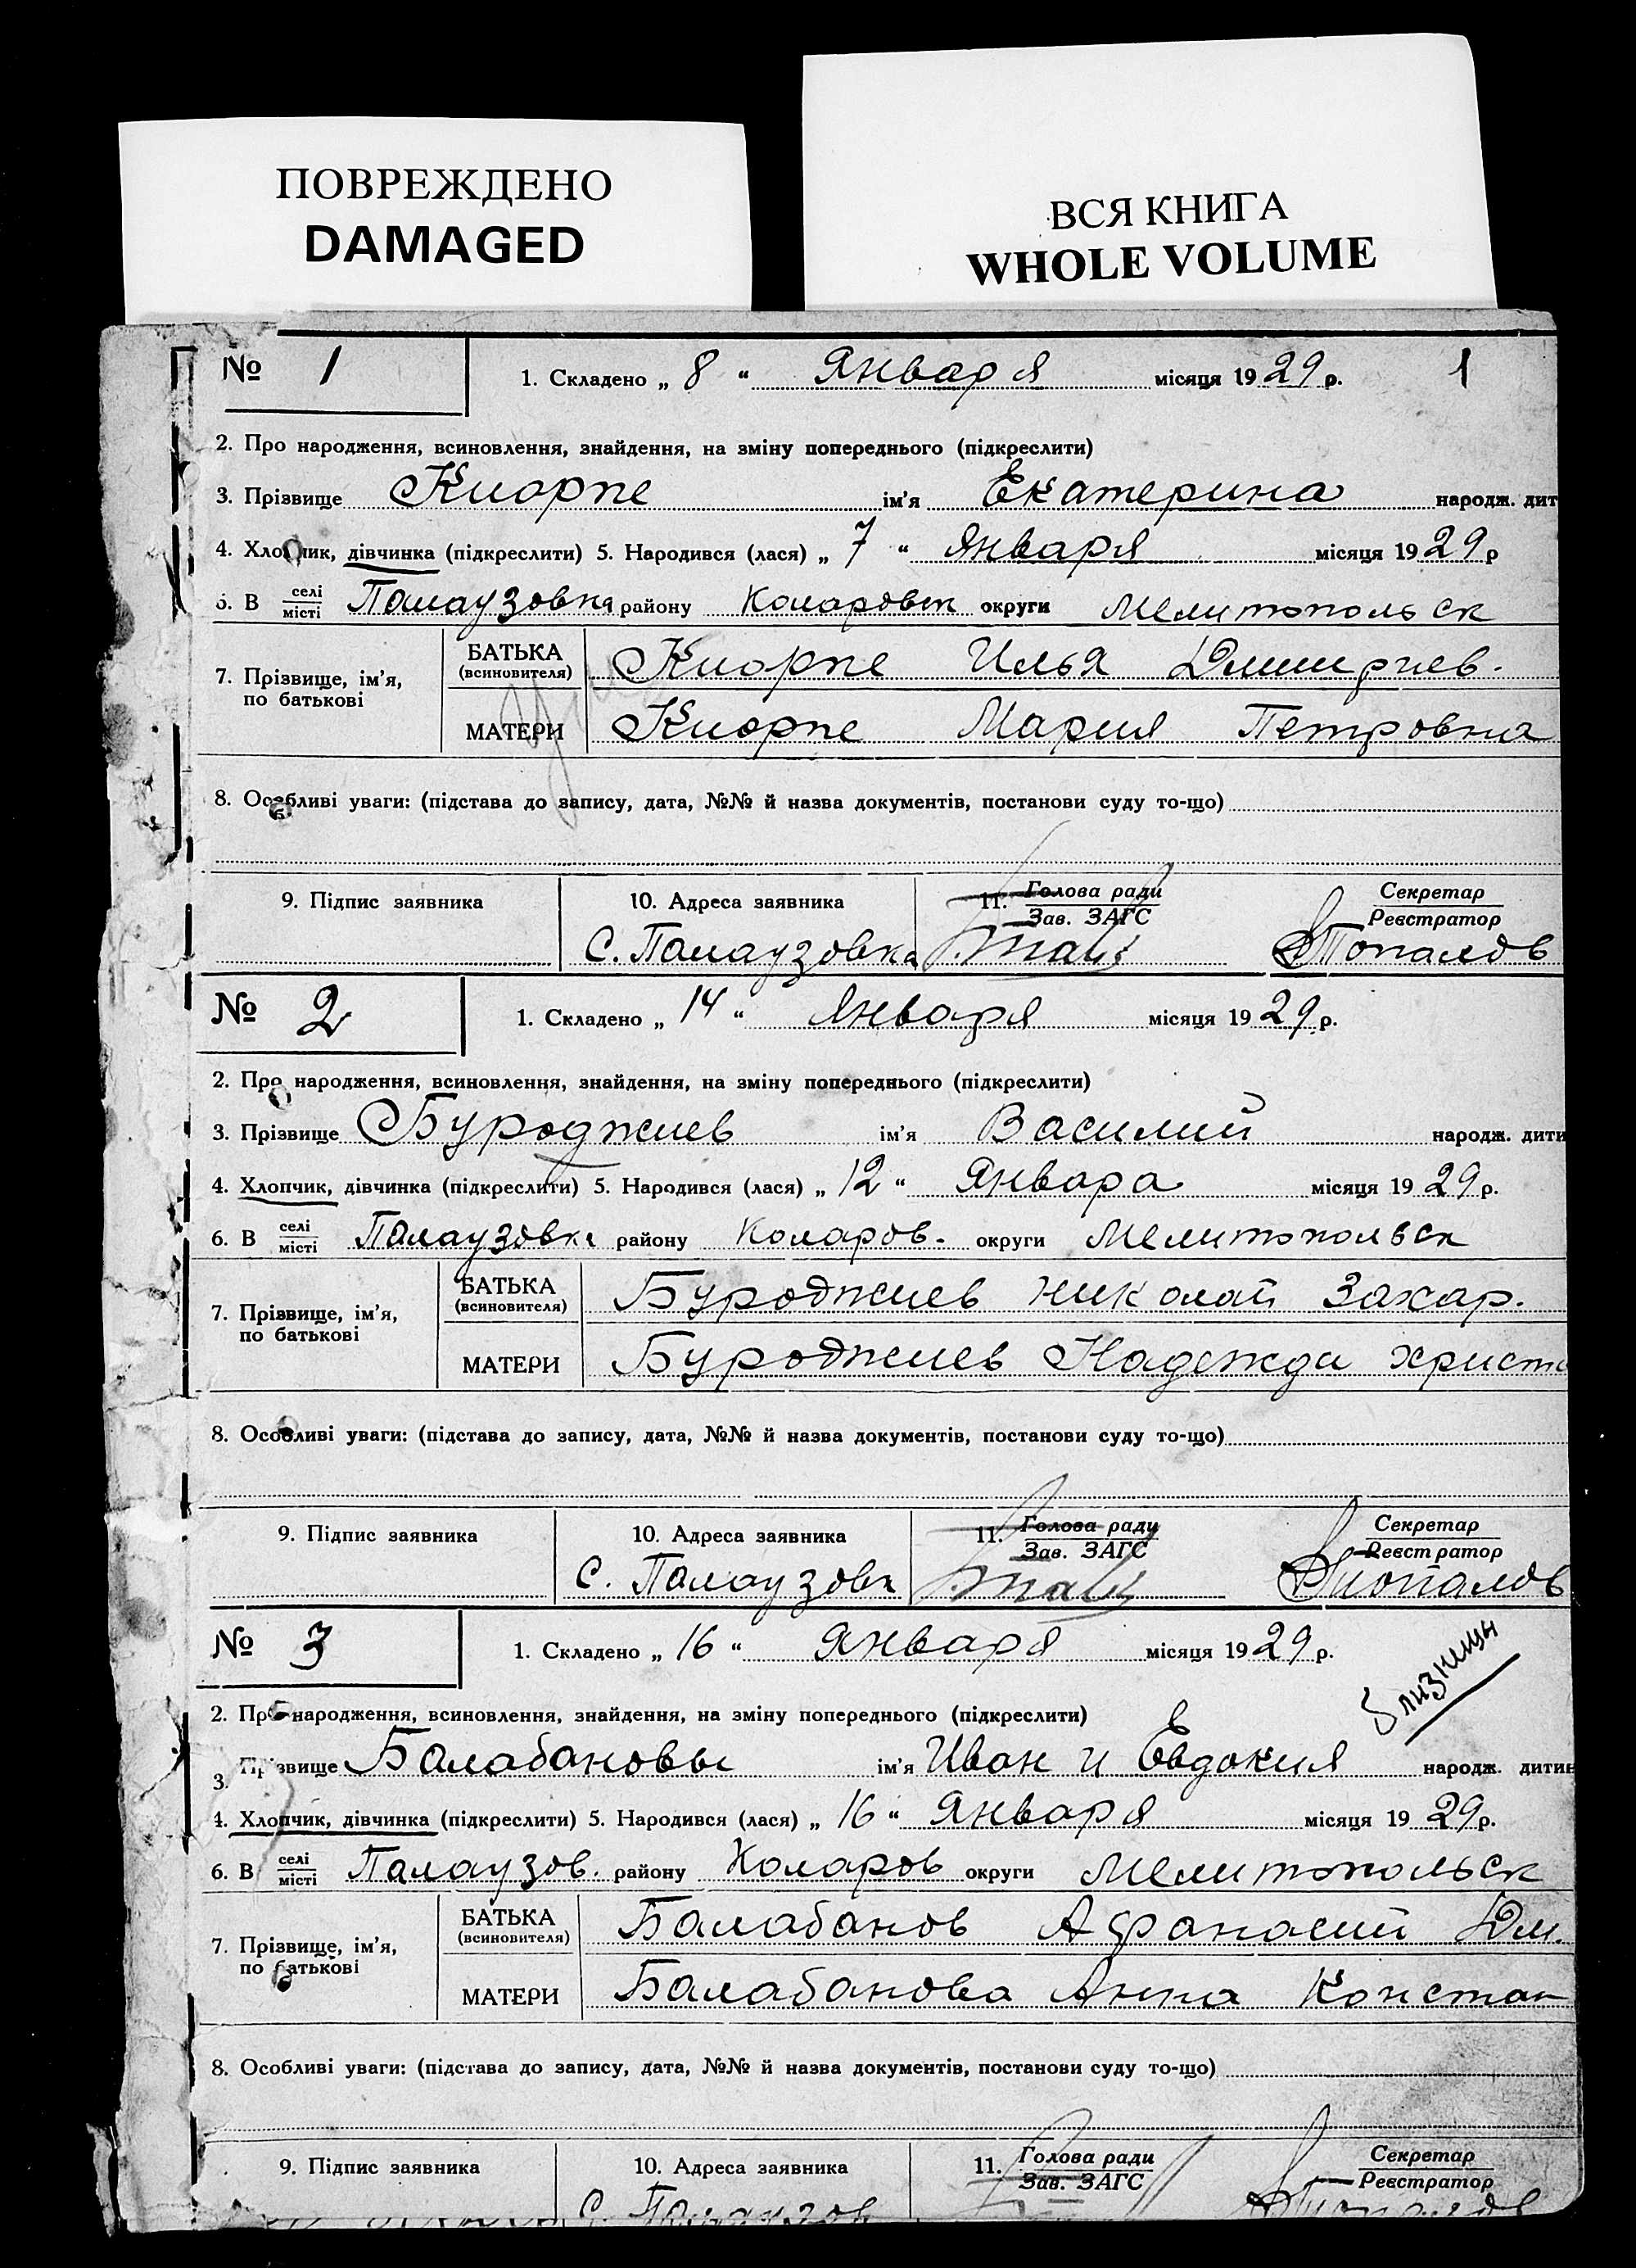 ПОВРЕЖДЕНО
DAMAGED
ВСЯ КНИГА
WHOLE VOLUME
№ 1 1. Складено „ 8 “ Января місяця 1929 р. 1
2. Про народження, всиновлення, знайдення, на зміну попереднього (підкреслити)
3. Прізвище Киорпе ім'я Екатерина народж. дит
4. Хлопчик, дівчинка (підкреслити) 5. Народився (лася) „ 7 “ Января місяця 1929 р
6. В селі/місті Палаузовка району Коларовск округи Мелитопольск
7. Прізвище, ім'я, по батькові БАТЬКА (всиновителя) Киорпе Илья Дмитриев.
МАТЕРИ Киорпе Мария Петровна
8. Особливі уваги: (підстава до запису, дата, №№ й назва документів, постанови суду то-що)
9. Підпис заявника 10. Адреса заявника 11. Голова ради/Зав. ЗАГС Секретар/Реєстратор
С. Палаузовка Топалов
№ 2 1. Складено „ 14 “ Января місяця 1929 р.
2. Про народження, всиновлення, знайдення, на зміну попереднього (підкреслити)
3. Прізвище Буроджиев ім'я Василий народж. дити
4. Хлопчик, дівчинка (підкреслити) 5. Народився (лася) „ 12 “ Января місяця 1929 р.
6. В селі/місті Палаузовка району Коларов. округи Мелитопольск
7. Прізвище, ім'я, по батькові БАТЬКА (всиновителя) Буроджиев Николай Захар.
МАТЕРИ Буроджиев Надежда Христо
8. Особливі уваги: (підстава до запису, дата, №№ й назва документів, постанови суду то-що)
9. Підпис заявника 10. Адреса заявника 11. Голова ради/Зав. ЗАГС Секретар/Реєстратор
С. Палаузовк Топалов
№ 3 1. Складено „ 16 “ Января місяця 1929 р.
Близницы
2. Про народження, всиновлення, знайдення, на зміну попереднього (підкреслити)
3. Прізвище Балабановы ім'я Иван и Евдокия народж. дитин
4. Хлопчик, дівчинка (підкреслити) 5. Народився (лася) „ 16 “ Января місяця 1929 р.
6. В селі/місті Палаузов. району Коларов округи Мелитопольск
7. Прізвище, ім'я, по батькові БАТЬКА (всиновителя) Балабанов Афанасий Дм.
МАТЕРИ Балабанова Анна Констан
8. Особливі уваги: (підстава до запису, дата, №№ й назва документів, постанови суду то-що)
9. Підпис заявника 10. Адреса заявника 11. Голова ради/Зав. ЗАГС Секретар/Реєстратор
С. Палаузов Топалов